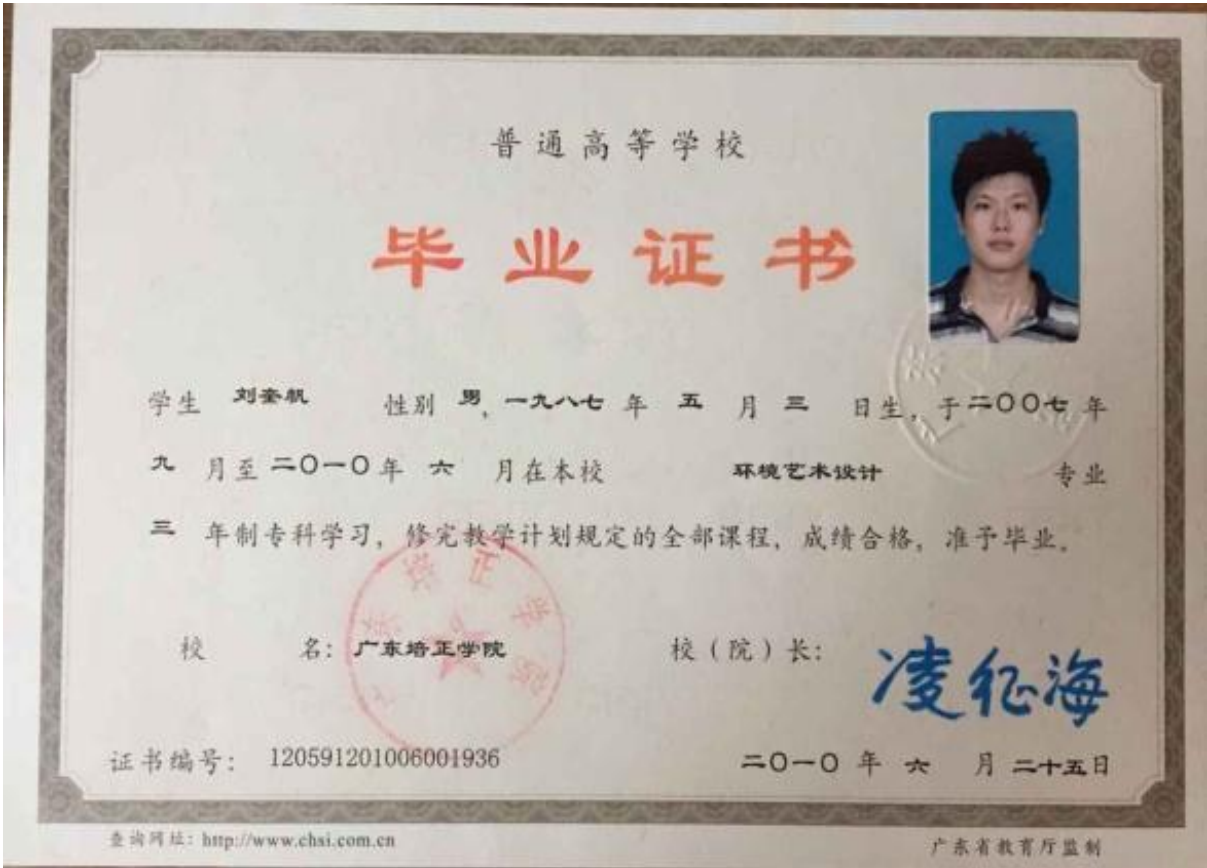 普通高等学校
毕业证书
学生 刘奎帆 性别 男, 一九八七 年 五 月 三 日生, 于二〇〇七 年
九 月至 二〇一〇 年 六 月在本校 环境艺术设计 专业
三 年制专科学习, 修完教学计划规定的全部课程, 成绩合格, 准予毕业。
广东培正学院
校 名: 广东培正学院 校(院)长: 凌征海
证书编号: 120591201006001936 二〇一〇 年 六 月 二十五日
查询网址: http://www.chsi.com.cn 广东省教育厅监制